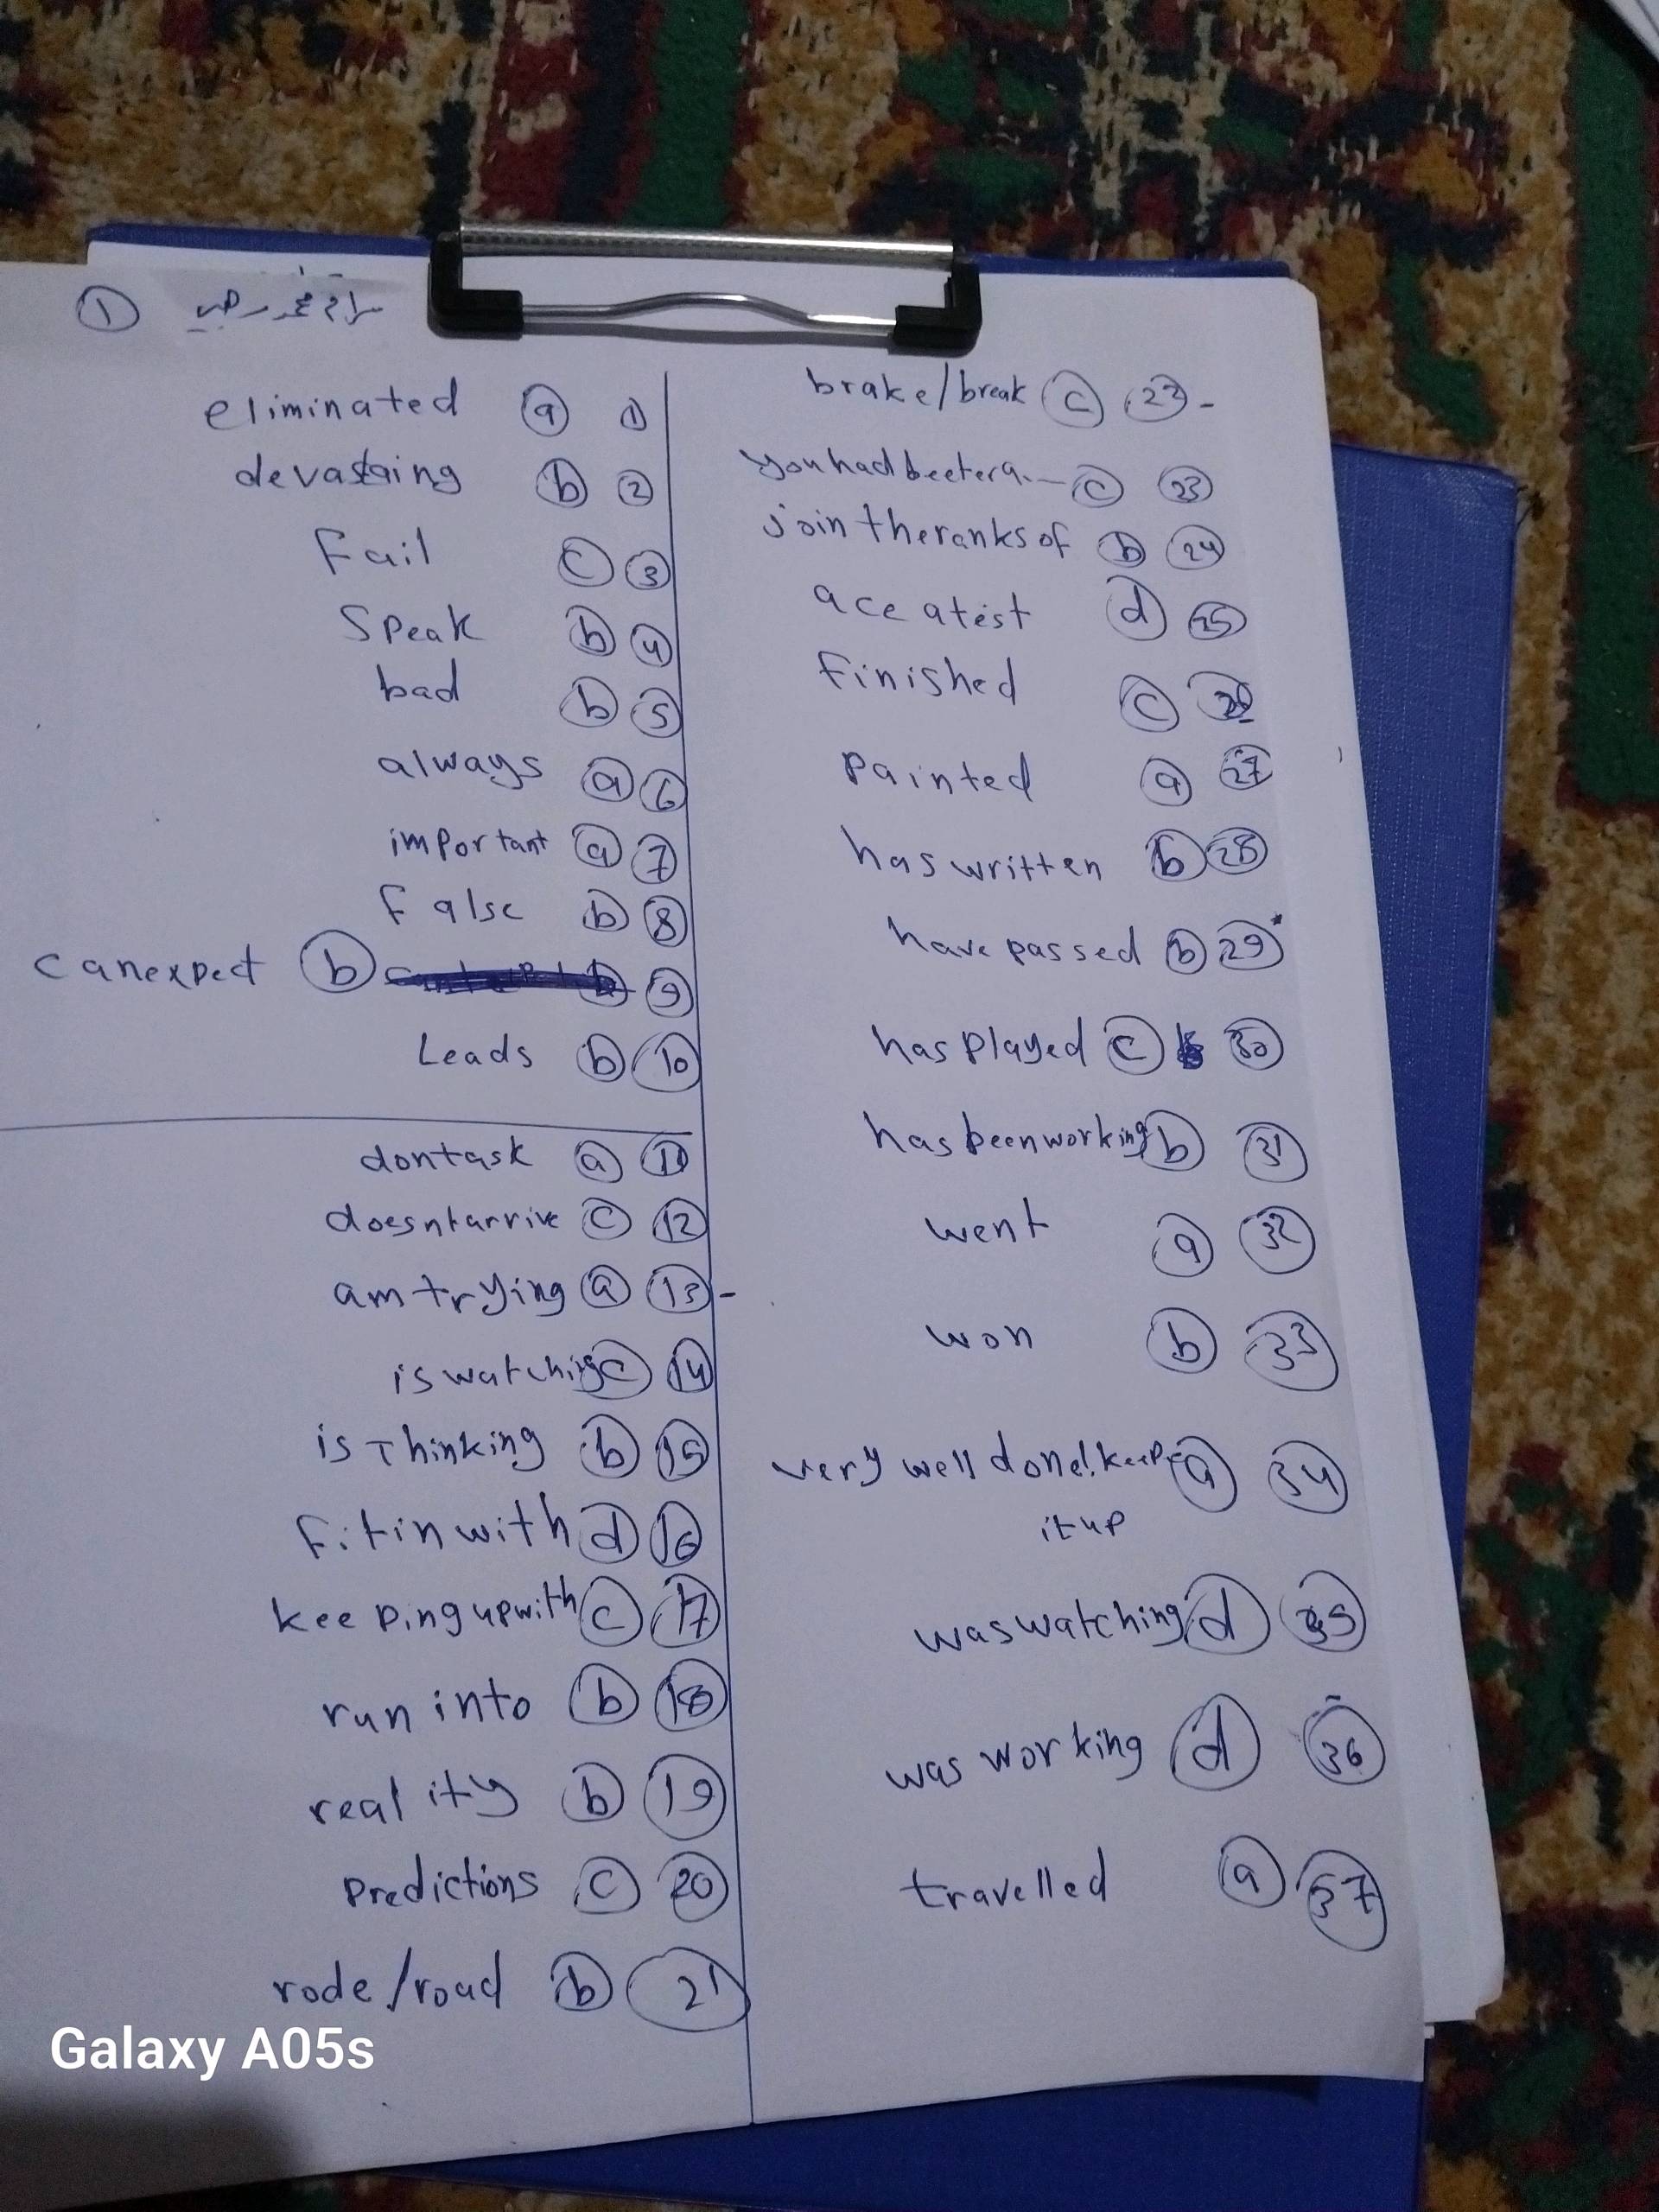 1
eliminated a 1
devastaing b 2
Fail c 3
Speak b 4
bad b 5
always a 6
important a 7
False b 8
canexpect b 9
Leads b 10
dontask a 11
doesntarrive c 12
am trying a 13 -
is watching c 14
is Thinking b 15
Fitin with d 16
keepingupwith c 17
run into b 18
reality b 19
Predictions c 20
rode/road b 21
brake/break c 22 -
youhadbeetera.— c 23
join theranksof b 24
ace atest d 25
Finished c 26
Painted a 27
has written b 28
have passed b 29
has Played c 30
hasbeenworking b 31
went a 32
won b 33
very well done! keep a 34
itup
waswatching d 35
was working d 36
travelled a 37
Galaxy A05s